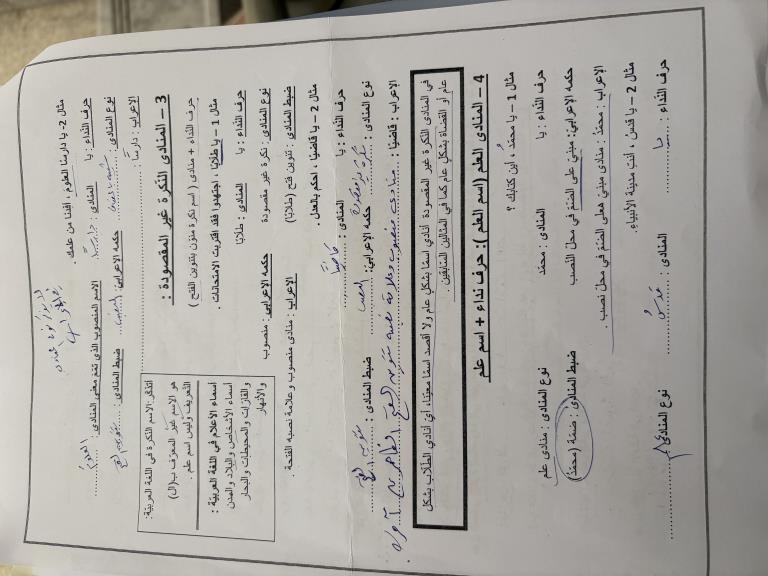 مثال 2- يا دارسًا العلوم ، أفدنا من علمك .
حرف النداء : يا المنادى : دارسًا الاسم المنصوب الذي تمّم معنى المنادى : العلومَ
نوع المنادى : شبيه بالمضاف حكمه الإعرابي : النصب ضبط المنادى : تنوين الفتح
الإعراب : دارسًا :
3 – المنادى النكرة غير المقصودة :
حرف النداء + منادى ( اسم نكرة منوّن بتنوين الفتح )
مثال 1 – يا طلابًا ، اجتهدوا فقد اقتربت الامتحانات .
حرف النداء : يا المنادى : طلابًا
نوع المنادى : نكرة غير مقصودة حكمه الإعرابي : منصوب
ضبط المنادى : تنوين فتح (طلابًا) الإعراب : منادى منصوب و علامة نصبه الفتحة .
أتذكر :الاسم النكرة في اللغة العربيّة:
هو الاسم غير المعرّف ب(ال)
التعريف وليس اسم علم .
أسماء الأعلام في اللغة العربيّة :
أسماء الأشخاص والبلاد والمدن
والقارّات والمحيطات والبحار
والأنهار
مثال 2 – يا قاضيًا ، احكم بالعدل .
حرف النداء : يا المنادى : قاضيًا
نوع المنادى : نكرة غير مقصودة حكمه الإعرابي: النصب ضبط المنادى : تنوين الفتح
الإعراب : قاضيًا : منادى منصوب وعلامة نصبه تنوين الفتح الظاهر على آخره .
في المنادى النكرة غير المقصودة أنادي اسمًا بشكل عام ولا أقصد اسمًا معيّنًا أي أنادي الطلاب بشكل
عام أو القضاة بشكل عام كما في المثالين السابقين .
4 – المنادى العلم (اسم العلم ): حرف نداء + اسم علم
مثال 1 – يا محمدُ ، أين كتابك ؟
حرف النداء : يا المنادى : محمد نوع المنادى : منادى علم
حكمه الإعرابي: مبني على الضمّ في محلّ النصب ضبط المنادى : ضمة (محمدُ)
الإعراب : محمدُ : منادى مبني على الضمّ في محلّ نصب .
مثال 2 – يا قدسُ ، أنتِ مدينة الأنبياء.
حرف النداء : يا المنادى : قدسُ نوع المنادى : علم